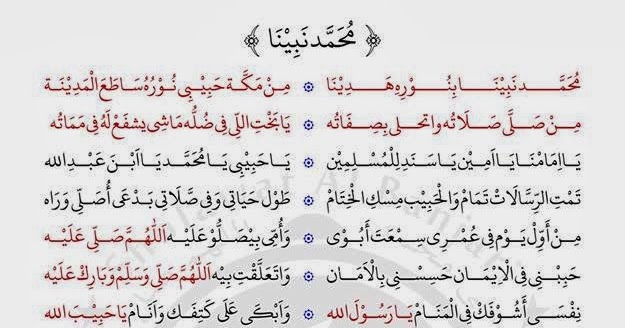 ﴿ مُحَمَّد نَبِيْنَا ﴾
مُحَمَّد نَبِيْنَا بِنُوْرِهِ هَدِيْنَا ۞ مِنْ مَكَّة حَبِيْبِي نُوْرُهُ سَاطَعَ الْمَدِيْنَة
مِنْ صَلَّى صَلَاتُه واتحلى بِصِفَاتُه ۞ يَا بَخْتِ اللِّي فِى ضُلُّه مَاشِى يشفَعْ لَهُ فِى مَمَاتُه
يَا اِمَامْنَا يَا اَمِيْن يَا سَنَدِ لِلْمُسْلِمِيْن ۞ يَا حَبِيْبِى يَا مُحَمَّد يَا ابْنَ عَبْدِ الله
تَمَّتِ الرِّسَالَاتْ تَمَامْ وَالْحَبِيبْ مِسْكِ الْخِتَامْ ۞ طَوْل حَيَاتِى وَفِى صَلَاتِى بَدْعَى أُصَلِّى وَرَاه
مِنْ أَوِّل يَوْم فِى عُمْرِى سِمْعَتَ أَبُوْىَ ۞ وَأُمِّى بِيْصَلُّوْ عَلَيْه اَللّٰهُمَّ صَلِّى عَلَيْه
حَبِبْنِى فَى الْاِيْمَان حَسِسْنِى بِالْاَمَان ۞ وَاتعَلَّقْتِ بِيْه اَللّٰهُمَّ صَلِّى وَسَلِّمْ وَبَارِكْ عَلَيْه
نِفْسِى أَشُوْفَكْ فِى الْمَنَامْ يَا رَسُوْلَ الله ۞ وَابْكَى عَلَى كَتِفَكْ وَانَامْ يَا حَبِيْبَ الله